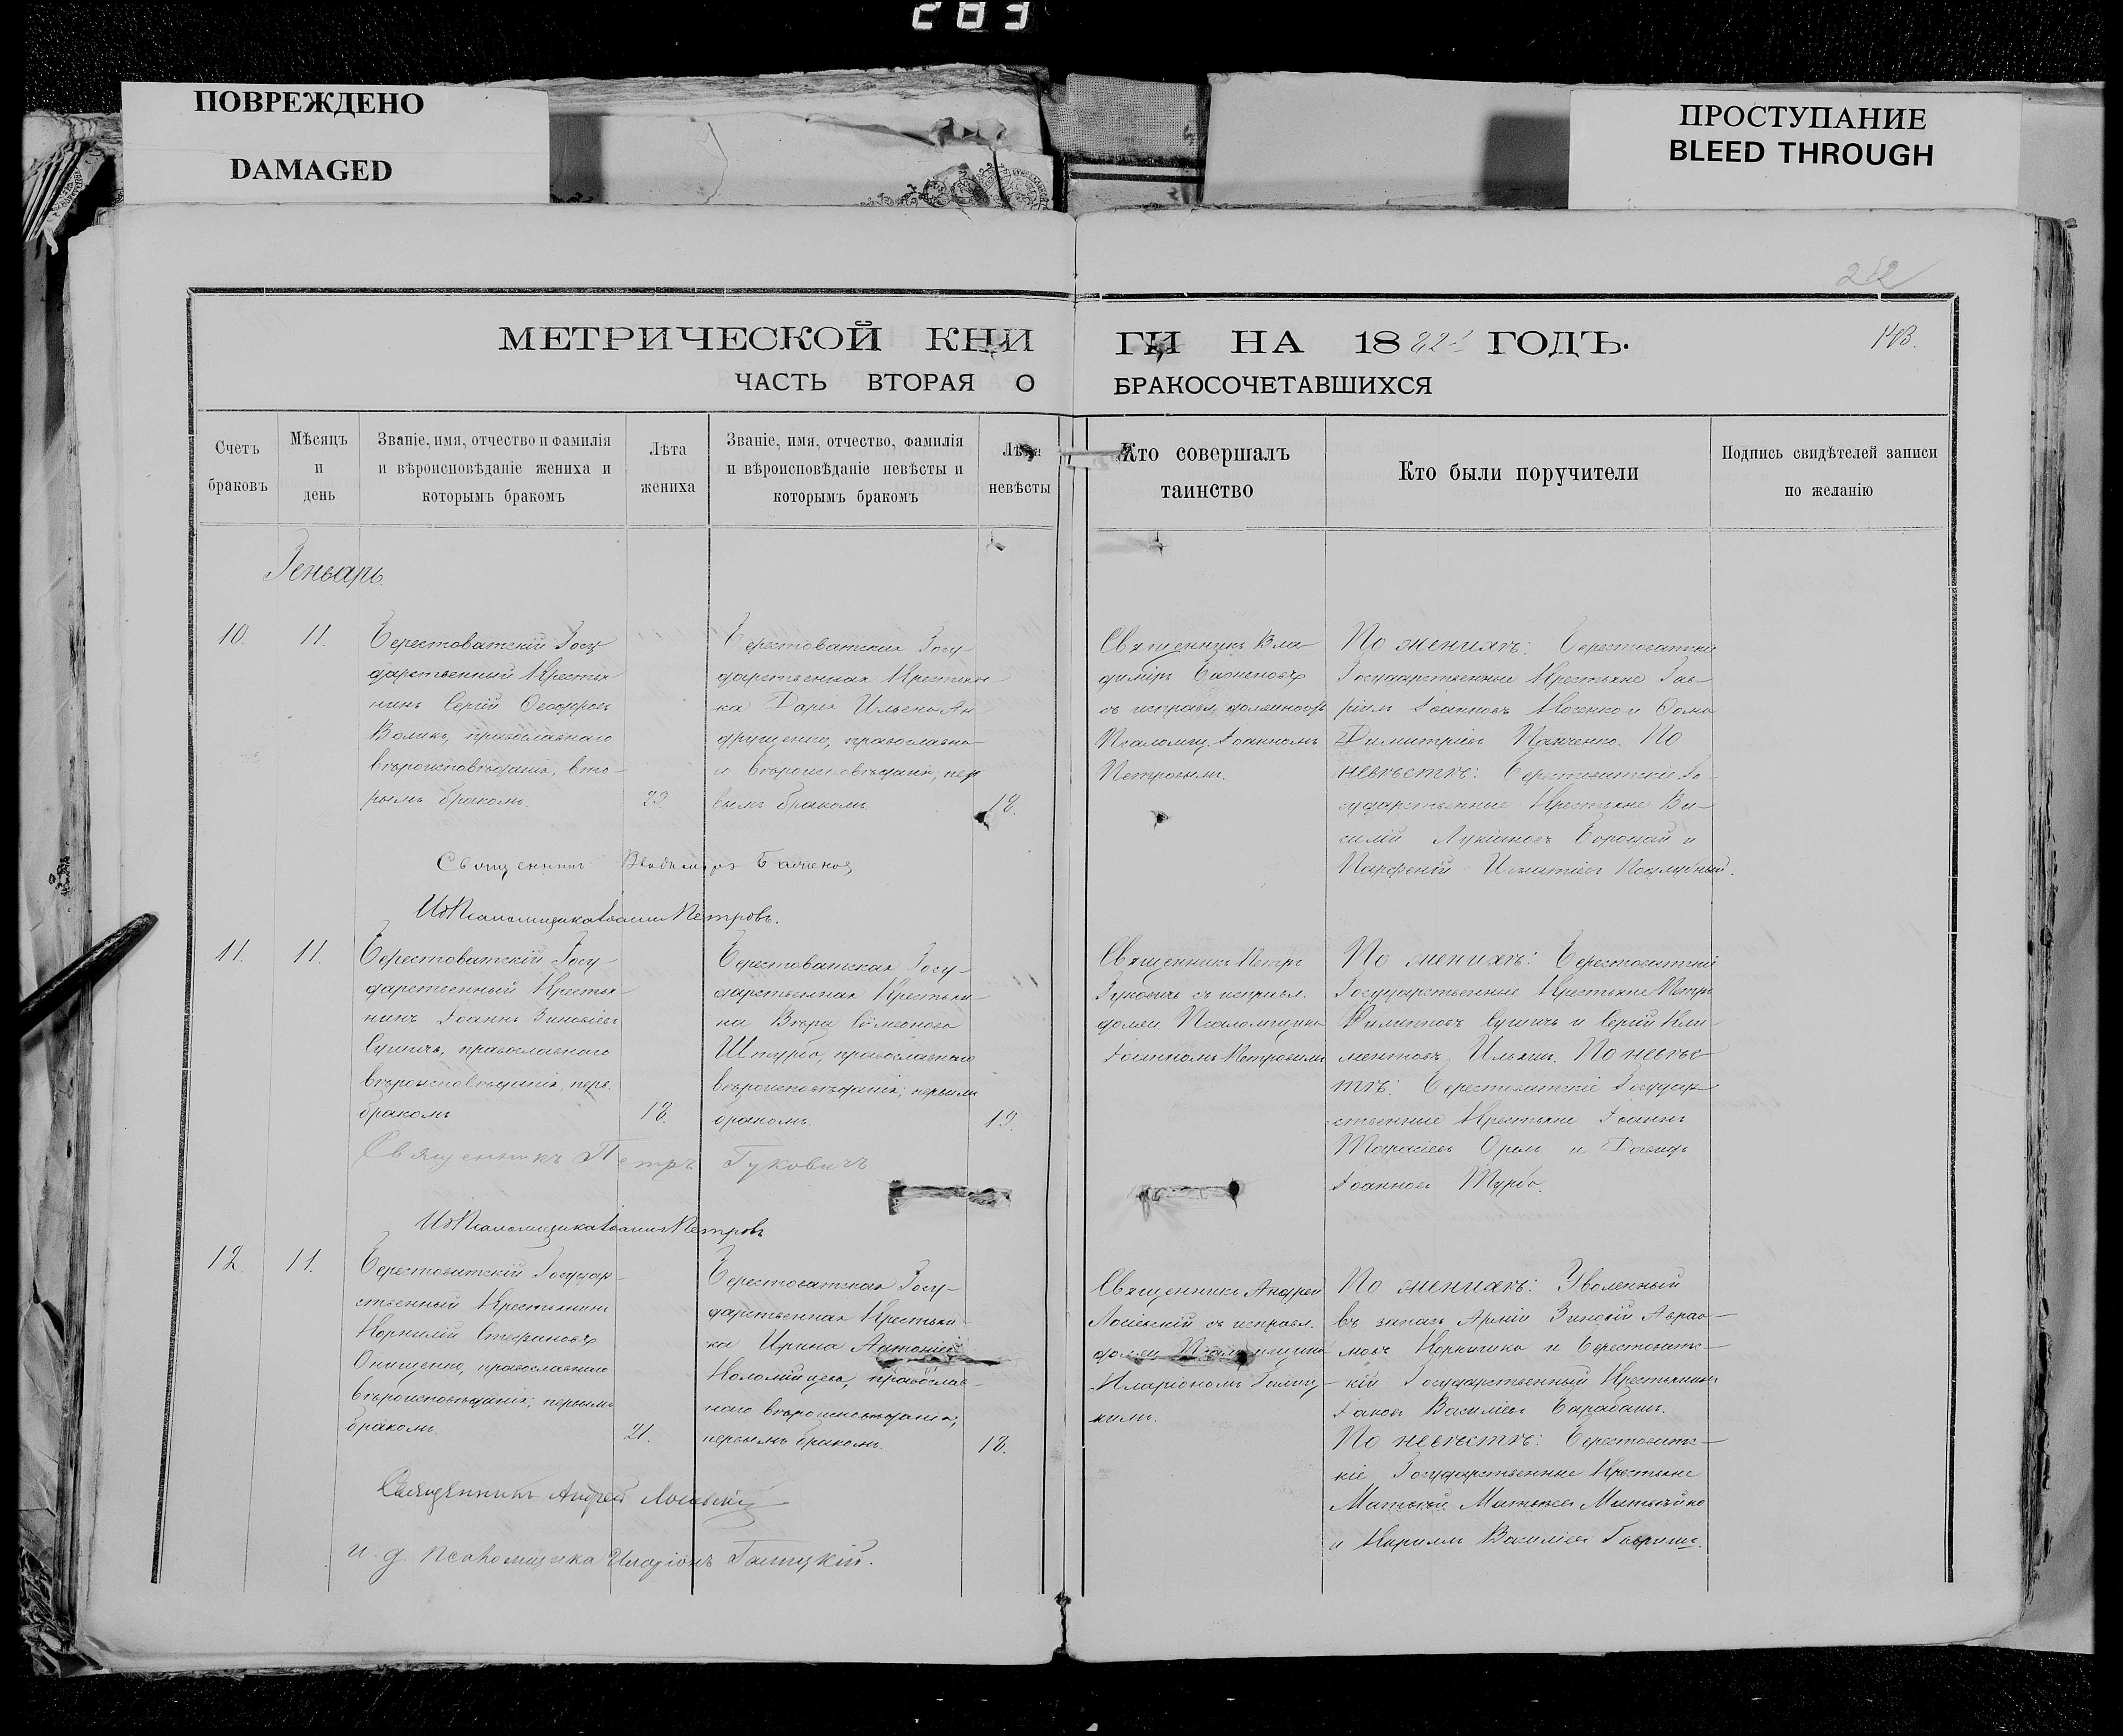 283
ПОВРЕЖДЕНО
DAMAGED
ПРОСТУПАНИЕ
BLEED THROUGH
252
МЕТРИЧЕСКОЙ КНИ
ГИ НА 18 ГОДЪ.
ЧАСТЬ ВТОРАЯ О
БРАКОСОЧЕТАВШИХСЯ
Счетъ
браковъ
Мѣсяцъ
и
день
Званіе, имя, отчество и фамилія
и вѣроисповѣданіе жениха и
которымъ бракомъ
Лѣта
жениха
Званіе, имя, отчество, фамилія
и вѣроисповѣданіе невѣсты и
которымъ бракомъ
Лѣта
невѣсты
Кто совершалъ
таинство
Кто были поручители
Подпись свидѣтелей записи
по желанію
Генварь.
10.
11.
Берестоватскій Госу-
дарственный Крестья-
нинъ Сергій
Воликъ, православнаго
вѣроисповѣданія, вто-
рымъ бракомъ.
Берестоватская Госу-
дарственная Крестьян
ка Дарья Ильева Ан
друщенко, православна
го вѣроисповѣданія, пер
вымъ бракомъ.
18.
Священникъ Вла-
димиръ Баженовъ
съ исправл. должность
Псаломщ. Іоанномъ
Петровымъ.
По женихѣ: Берестоватскіе
Государственные Крестьяне Гав-
ріилъ Іоанновъ и Ѳома
Димитріевъ Панченко. По
невѣстѣ: Берестоватскіе Го-
сударственные Крестьяне Ва-
силій Лукіановъ Бородай и
Парфеній Игнатіевъ
Священникъ Владимиръ Баженовъ
ИД Псаломщика Іоаннъ Петровъ.
11.
11.
Берестоватскій Госу-
дарственный Крестья-
нинъ Іоаннъ Зиновіевъ
православнаго
вѣроисповѣданія, перв.
бракомъ
18.
Берестоватская Госу-
дарственная Крестьян-
ка Вѣра Симеонова
православнаго
вѣроисповѣданія; первымъ
бракомъ.
19.
Священникъ Петръ
Гуковичъ съ исправл.
должн. Псаломщика
Іоанномъ Петровымъ
По женихѣ: Берестоватскіе
Государственные Крестьяне Петръ
и Сергій Кли-
ментовъ Ильинъ. По невѣс-
тѣ: Берестоватскіе Государ-
ственные Крестьяне Іоаннъ
Орелъ и Давидъ
Іоанновъ Турбо.
Священникъ Петръ Гуковичъ
ИД Псаломщика Іоаннъ Петровъ
12.
11.
Берестоватскій Государ-
ственный Крестьянинъ
Корнилій Стефановъ
Онищенко, православнаго
вѣроисповѣданія; первымъ
бракомъ.
21.
Берестоватская Госу-
дарственная Крестьян-
ка Ирина Антоніева
Коломійцева, православ-
наго вѣроисповѣданія;
первымъ бракомъ.
18.
Священникъ Андрей
Лосіевскій съ исправл.
должн. Псаломщика
Иларіономъ Галиц-
кимъ.
По женихѣ: Уволенный
въ запасъ Арміи Зиновій Авраа-
мовъ и Берестоват-
скій Государственный Крестьянинъ
Іаковъ Василіевъ Барабашъ.
По невѣстѣ: Берестоватс-
кіе Государственные Крестьяне
Матвей Матвеевъ
и Кириллъ Василіевъ
Священникъ Андрей Лосіевскій
и. д. псаломщика Иларіонъ Галицкій.